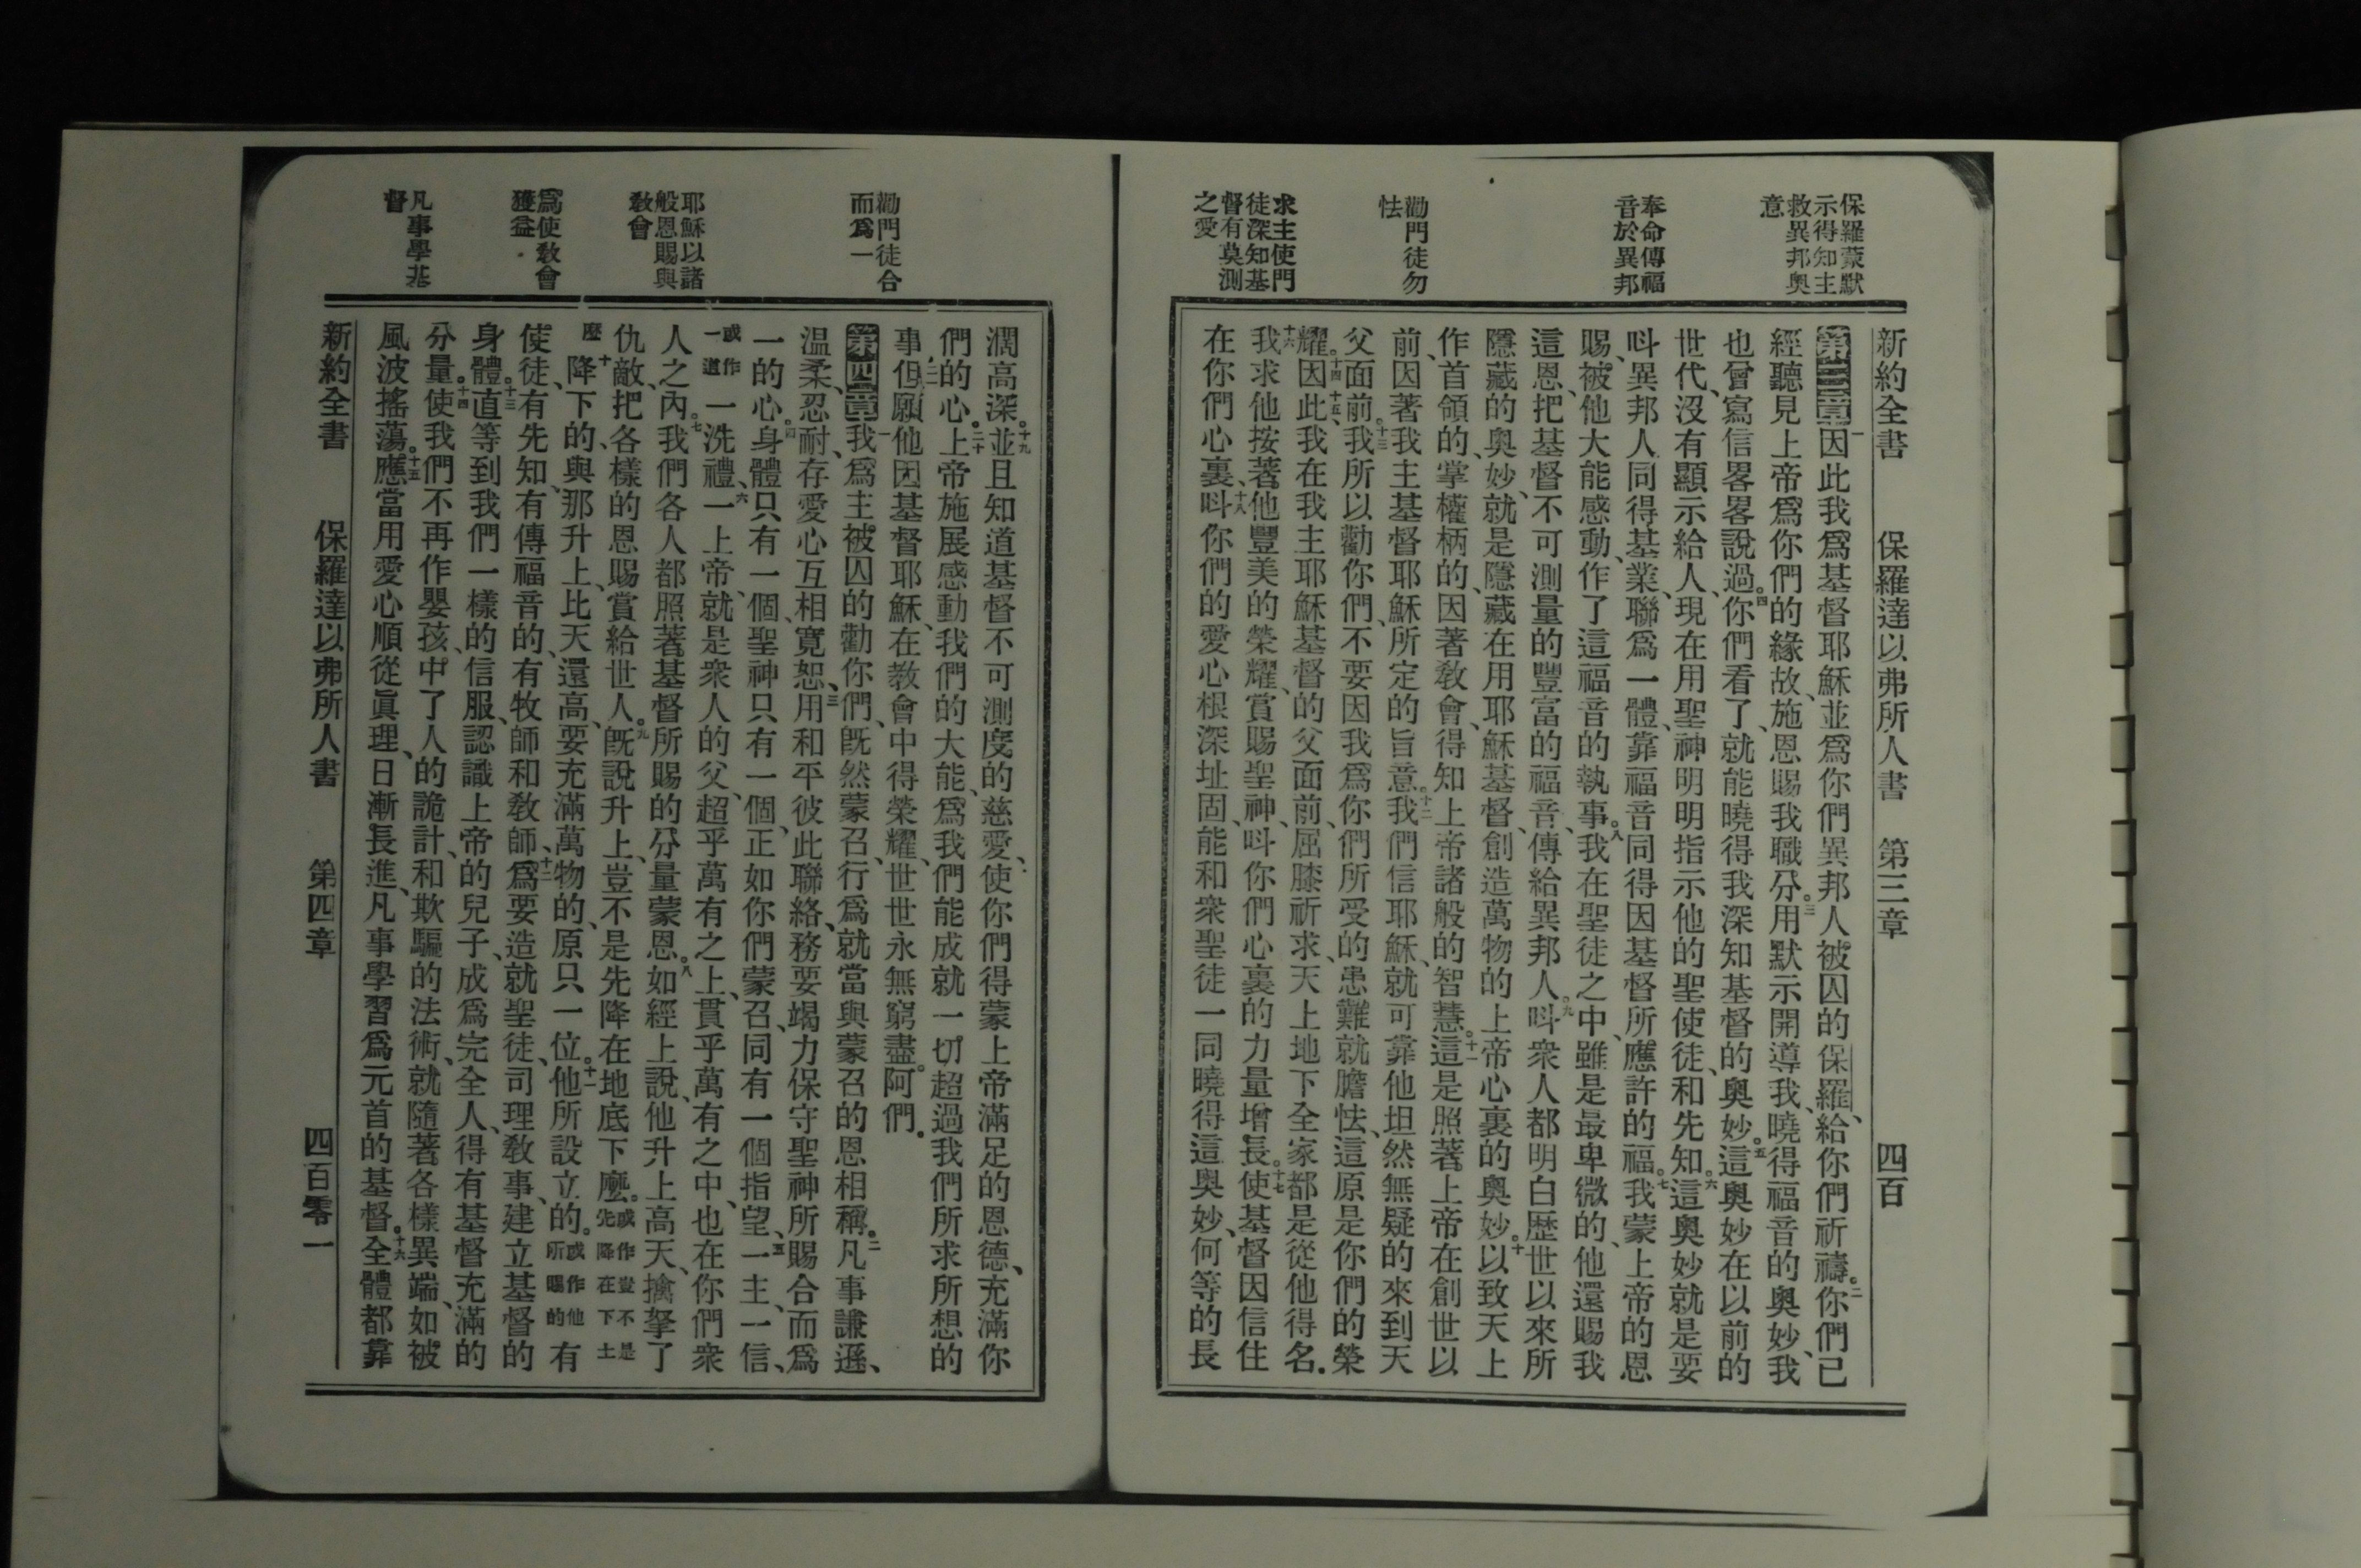 保羅蒙默
示得知主
救異邦奧
意
奉命傳福
音於異邦
勸門徒勿
怯
求主使門
徒深知基
督有莫測
之愛
新約全書　保羅達以弗所人書　第三章　四百
第三章一因此我爲基督耶穌、並爲你們異邦人被囚的保羅、給你們祈禱。二你們已
經聽見上帝爲你們的緣故、施恩賜我職分。三用默示開導我、曉得福音的奧妙、我
也曾寫信畧畧說過。四你們看了、就能曉得我深知基督的奧妙。五這奧妙在以前的
世代、沒有顯示給人、現在用聖神明明指示他的聖使徒、和先知。六這奧妙就是要
呌異邦人同得基業、聯爲一體、靠福音同得因基督所應許的福。七我蒙上帝的恩
賜、被他大能感動、作了這福音的執事。八我在聖徒之中、雖是最卑微的、他還賜我
這恩、把基督不可測量的豐富的福音、傳給異邦人。九呌衆人都明白歷世以來所
隱藏的奧妙、就是隱藏在用耶穌基督、創造萬物的上帝心裏的奧妙。十以致天上
作首領的、掌權柄的、因著教會、得知上帝諸般的智慧。十一這是照著上帝在創世以
前、因著我主基督耶穌所定的旨意。十二我們信耶穌、就可靠他坦然無疑的來到天
父面前。十三我所以勸你們、不要因我爲你們所受的患難就膽怯、這原是你們的榮
耀。十四因此、十五我在我主耶穌基督的父面前、屈膝祈求、天上地下全家都是從他得名。
十六我求他按著他豐美的榮耀、賞賜聖神、呌你們心裏的力量增長。十七使基督因信住
在你們心裏、十八呌你們的愛心根深址固、能和衆聖徒一同曉得這奧妙、何等的長
勸門徒合
而爲一
耶穌以諸
般恩賜與
教會
爲使教會
獲益
凡事學基
督
濶高深。十九並且知道基督不可測度的慈愛、使你們得蒙上帝滿足的恩德、充滿你
們的心。二十上帝施展感動我們的大能、爲我們能成就一切、超過我們所求所想的
事、二一但願他因基督耶穌、在教會中得榮耀、世世永無窮盡。阿們。
第四章一我爲主被囚的勸你們、旣然蒙召、行爲就當與蒙召的恩相稱。二凡事謙遜、
温柔、忍耐、存愛心互相寬恕、三用和平彼此聯絡、務要竭力保守聖神所賜合而爲
一的心。四身體只有一個、聖神只有一個、正如你們蒙召、同有一個指望、五一主、一信、
或作一道一洗禮、六一上帝、就是衆人的父、超乎萬有之上、貫乎萬有之中、也在你們衆
人之內。七我們各人都照著基督所賜的分量蒙恩。八如經上說、他升上高天、擒拏了
仇敵、把各樣的恩賜賞給世人。九旣說升上、豈不是先降在地底下麽。或作豈不是先降在下土
麽十降下的、與那升上、比天還高、要充滿萬物的、原只一位。十一他所設立的。或作他所賜的有
使徒、有先知、有傳福音的、有牧師和教師、十二爲要造就聖徒、司理教事、建立基督的
身體。十三直等到我們一樣的信服、認識上帝的兒子、成爲完全人、得有基督充滿的
分量。十四使我們不再作嬰孩、中了人的詭計、和欺騙的法術、就隨著各樣異端、如被
風波搖蕩。十五應當用愛心順從眞理、日漸長進、凡事學習爲元首的基督。十六全體都靠
新約全書　保羅達以弗所人書　第四章　四百零一